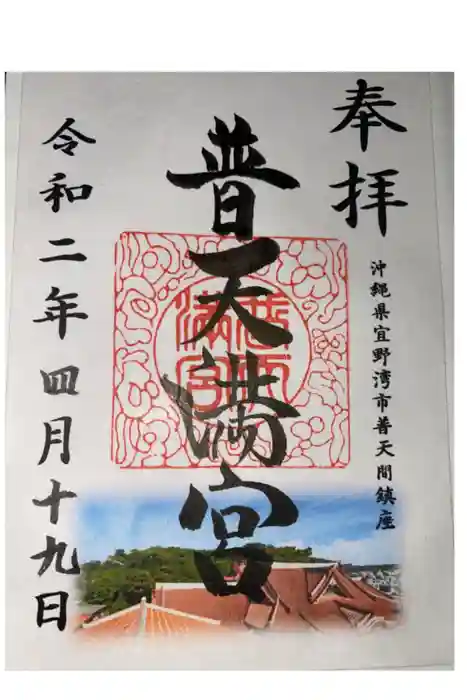 奉拝
沖縄県宜野湾市普天間鎮座
普天満宮
令和二年四月十九日